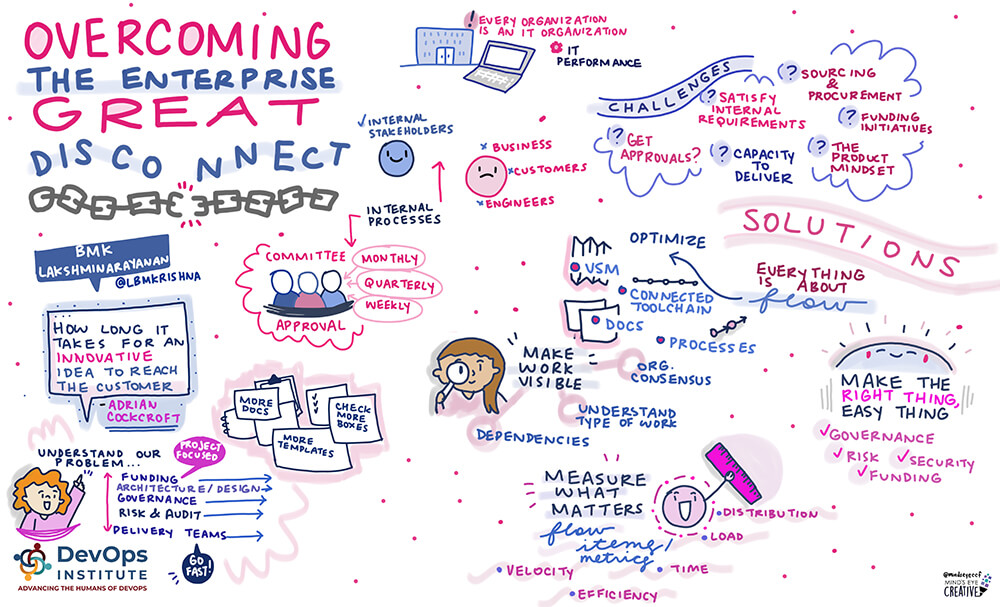 OVERCOMING
THE ENTERPRISE
GREAT
DISCONNECT
! EVERY ORGANIZATION
IS AN IT ORGANIZATION
IT
PERFORMANCE
✓INTERNAL
STAKEHOLDERS
x BUSINESS
xCUSTOMERS
xENGINEERS
INTERNAL
PROCESSES
COMMITTEE
MONTHLY
QUARTERLY
WEEKLY
APPROVAL
CHALLENGES
? SOURCING
&
PROCUREMENT
? SATISFY
INTERNAL
REQUIREMENTS
? FUNDING
INITIATIVES
? GET
APPROVALS?
? CAPACITY
TO
DELIVER
? THE
PRODUCT
MINDSET
SOLUTIONS
BMK
LAKSHMINARAYANAN
@LBMKRISHNA
HOW LONG IT
TAKES FOR AN
INNOVATIVE
IDEA TO REACH
THE CUSTOMER
-ADRIAN
COCKCROFT
MORE
DOCS
MORE
TEMPLATES
CHECK
MORE
BOXES
UNDERSTAND OUR
PROBLEM...
PROJECT
FOCUSED
FUNDING
ARCHITECTURE/DESIGN
GOVERNANCE
RISK & AUDIT
DELIVERY TEAMS
GO
FAST!
DevOps
INSTITUTE
ADVANCING THE HUMANS OF DEVOPS
OPTIMIZE
VSM
CONNECTED
TOOLCHAIN
DOCS
PROCESSES
EVERYTHING
IS ABOUT
flow
MAKE
WORK
VISIBLE
ORG.
CONSENSUS
UNDERSTAND
TYPE OF WORK
DEPENDENCIES
MAKE THE
RIGHT THING,
EASY THING
✓GOVERNANCE
✓RISK
✓SECURITY
✓FUNDING
MEASURE
WHAT
MATTERS
flow
items/
metrics
• DISTRIBUTION
• LOAD
• VELOCITY
• TIME
• EFFICIENCY
@mindseyeccf
MIND'S EYE
CREATIVE